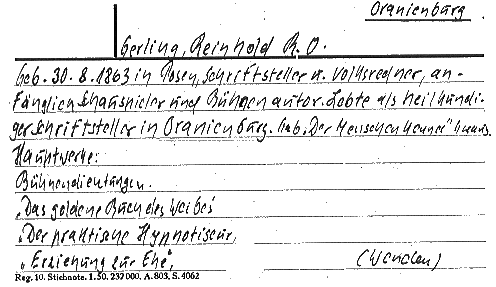 Oranienburg.
Gerling, Reinhold R. O.
Geb. 30. 8. 1863 in Posen, Schriftsteller u. Volksredner, an-
fänglich Schauspieler und Bühnenautor. Lebte als heilkundi-
ger Schriftsteller in Oranienburg. Gab „Der Menschenkenner" heraus.
Hauptwerke:
Bühnendichtungen.
„Das goldene Buch des Weibes"
„Der praktische Hypnotiseur,
„Erziehung zur Ehe",
(Wenden)
Reg. 10. Stichnote. 1. 50. 232000. A. 803. S. 4062